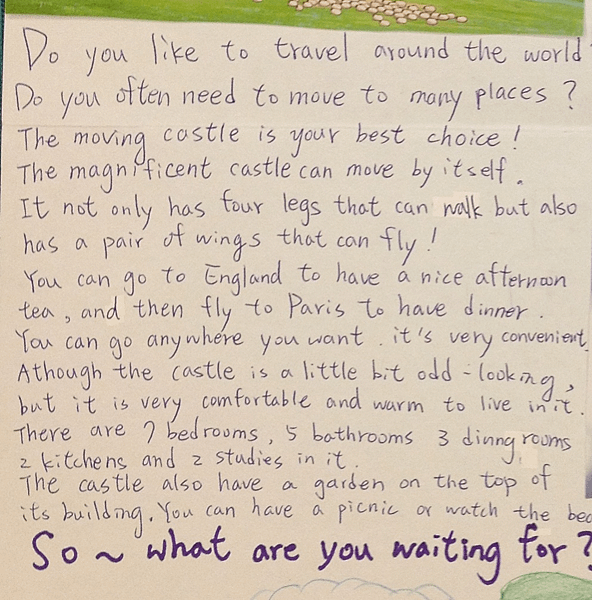 Do you like to travel around the world
Do you often need to move to many places ?
The moving castle is your best choice !
The magnificent castle can move by itself.
It not only has four legs that can walk but also
has a pair of wings that can fly !
You can go to England to have a nice afternoon
tea, and then fly to Paris to have dinner.
You can go anywhere you want. it's very convenient.
Athough the castle is a little bit odd-looking,
but it is very comfortable and warm to live in it.
There are 7 bedrooms, 5 bathrooms 3 dinng rooms
2 kitchens and 2 studies in it.
The castle also have a garden on the top of
its building. You can have a picnic or watch the
So ~ what are you waiting for ?